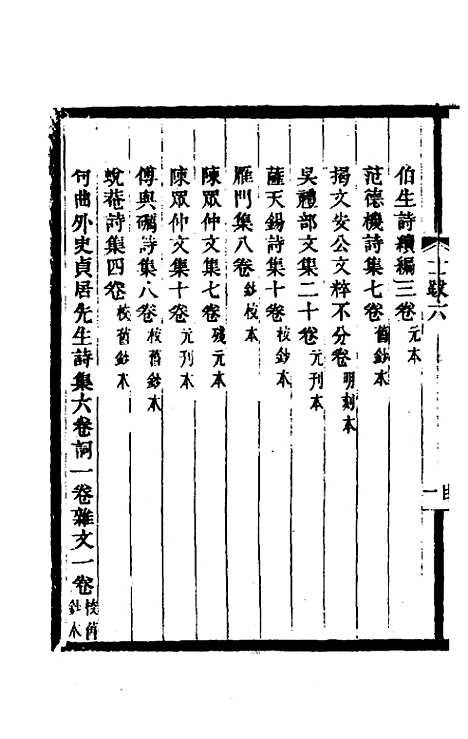 伯生詩續編三卷 元本
范德機詩集七卷 舊鈔本
揭文安公文粹不分卷 明刻本
吳禮部文集二十卷 元刊本
薩天錫詩集十卷 校鈔本
雁門集八卷 鈔校本
陳眾仲文集七卷 殘元本
陳眾仲文集十卷 元刊本
傅與礪詩集八卷 校舊鈔本
蛻菴詩集四卷 校舊鈔本
句曲外史貞居先生詩集六卷詞一卷雜文一卷 校舊鈔本
跋六
目
一